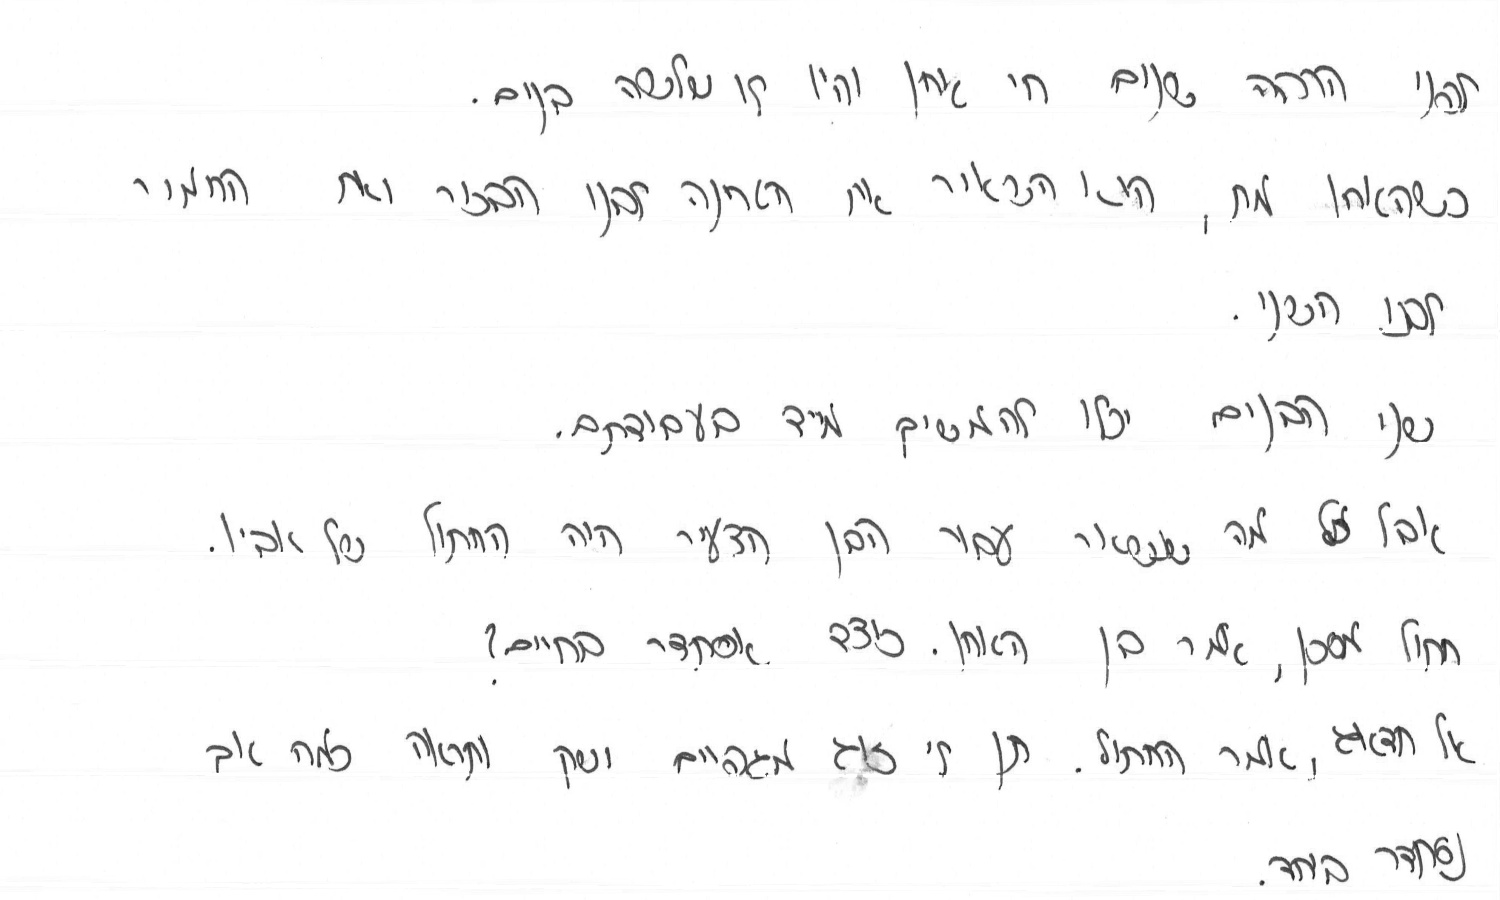 לפני הרבה שנים חי טוחן והיו לו שלושה בנים.
כשהטוחן מת, הוא השאיר את הטחנה לבנו הבכור ואת החמור
לבנו השני.
שני הבנים יכלו להמשיך מייד בעבודתם.
אבל כל מה שנשאר עבור הבן הצעיר היה החתול של אביו.
חתול מסכן, אמר בן הטוחן. כיצד אסתדר בחיים?
אל תדאג, אמר החתול. תן לי זוג מגפיים ושק ותראה כמה טוב
נסתדר ביחד.